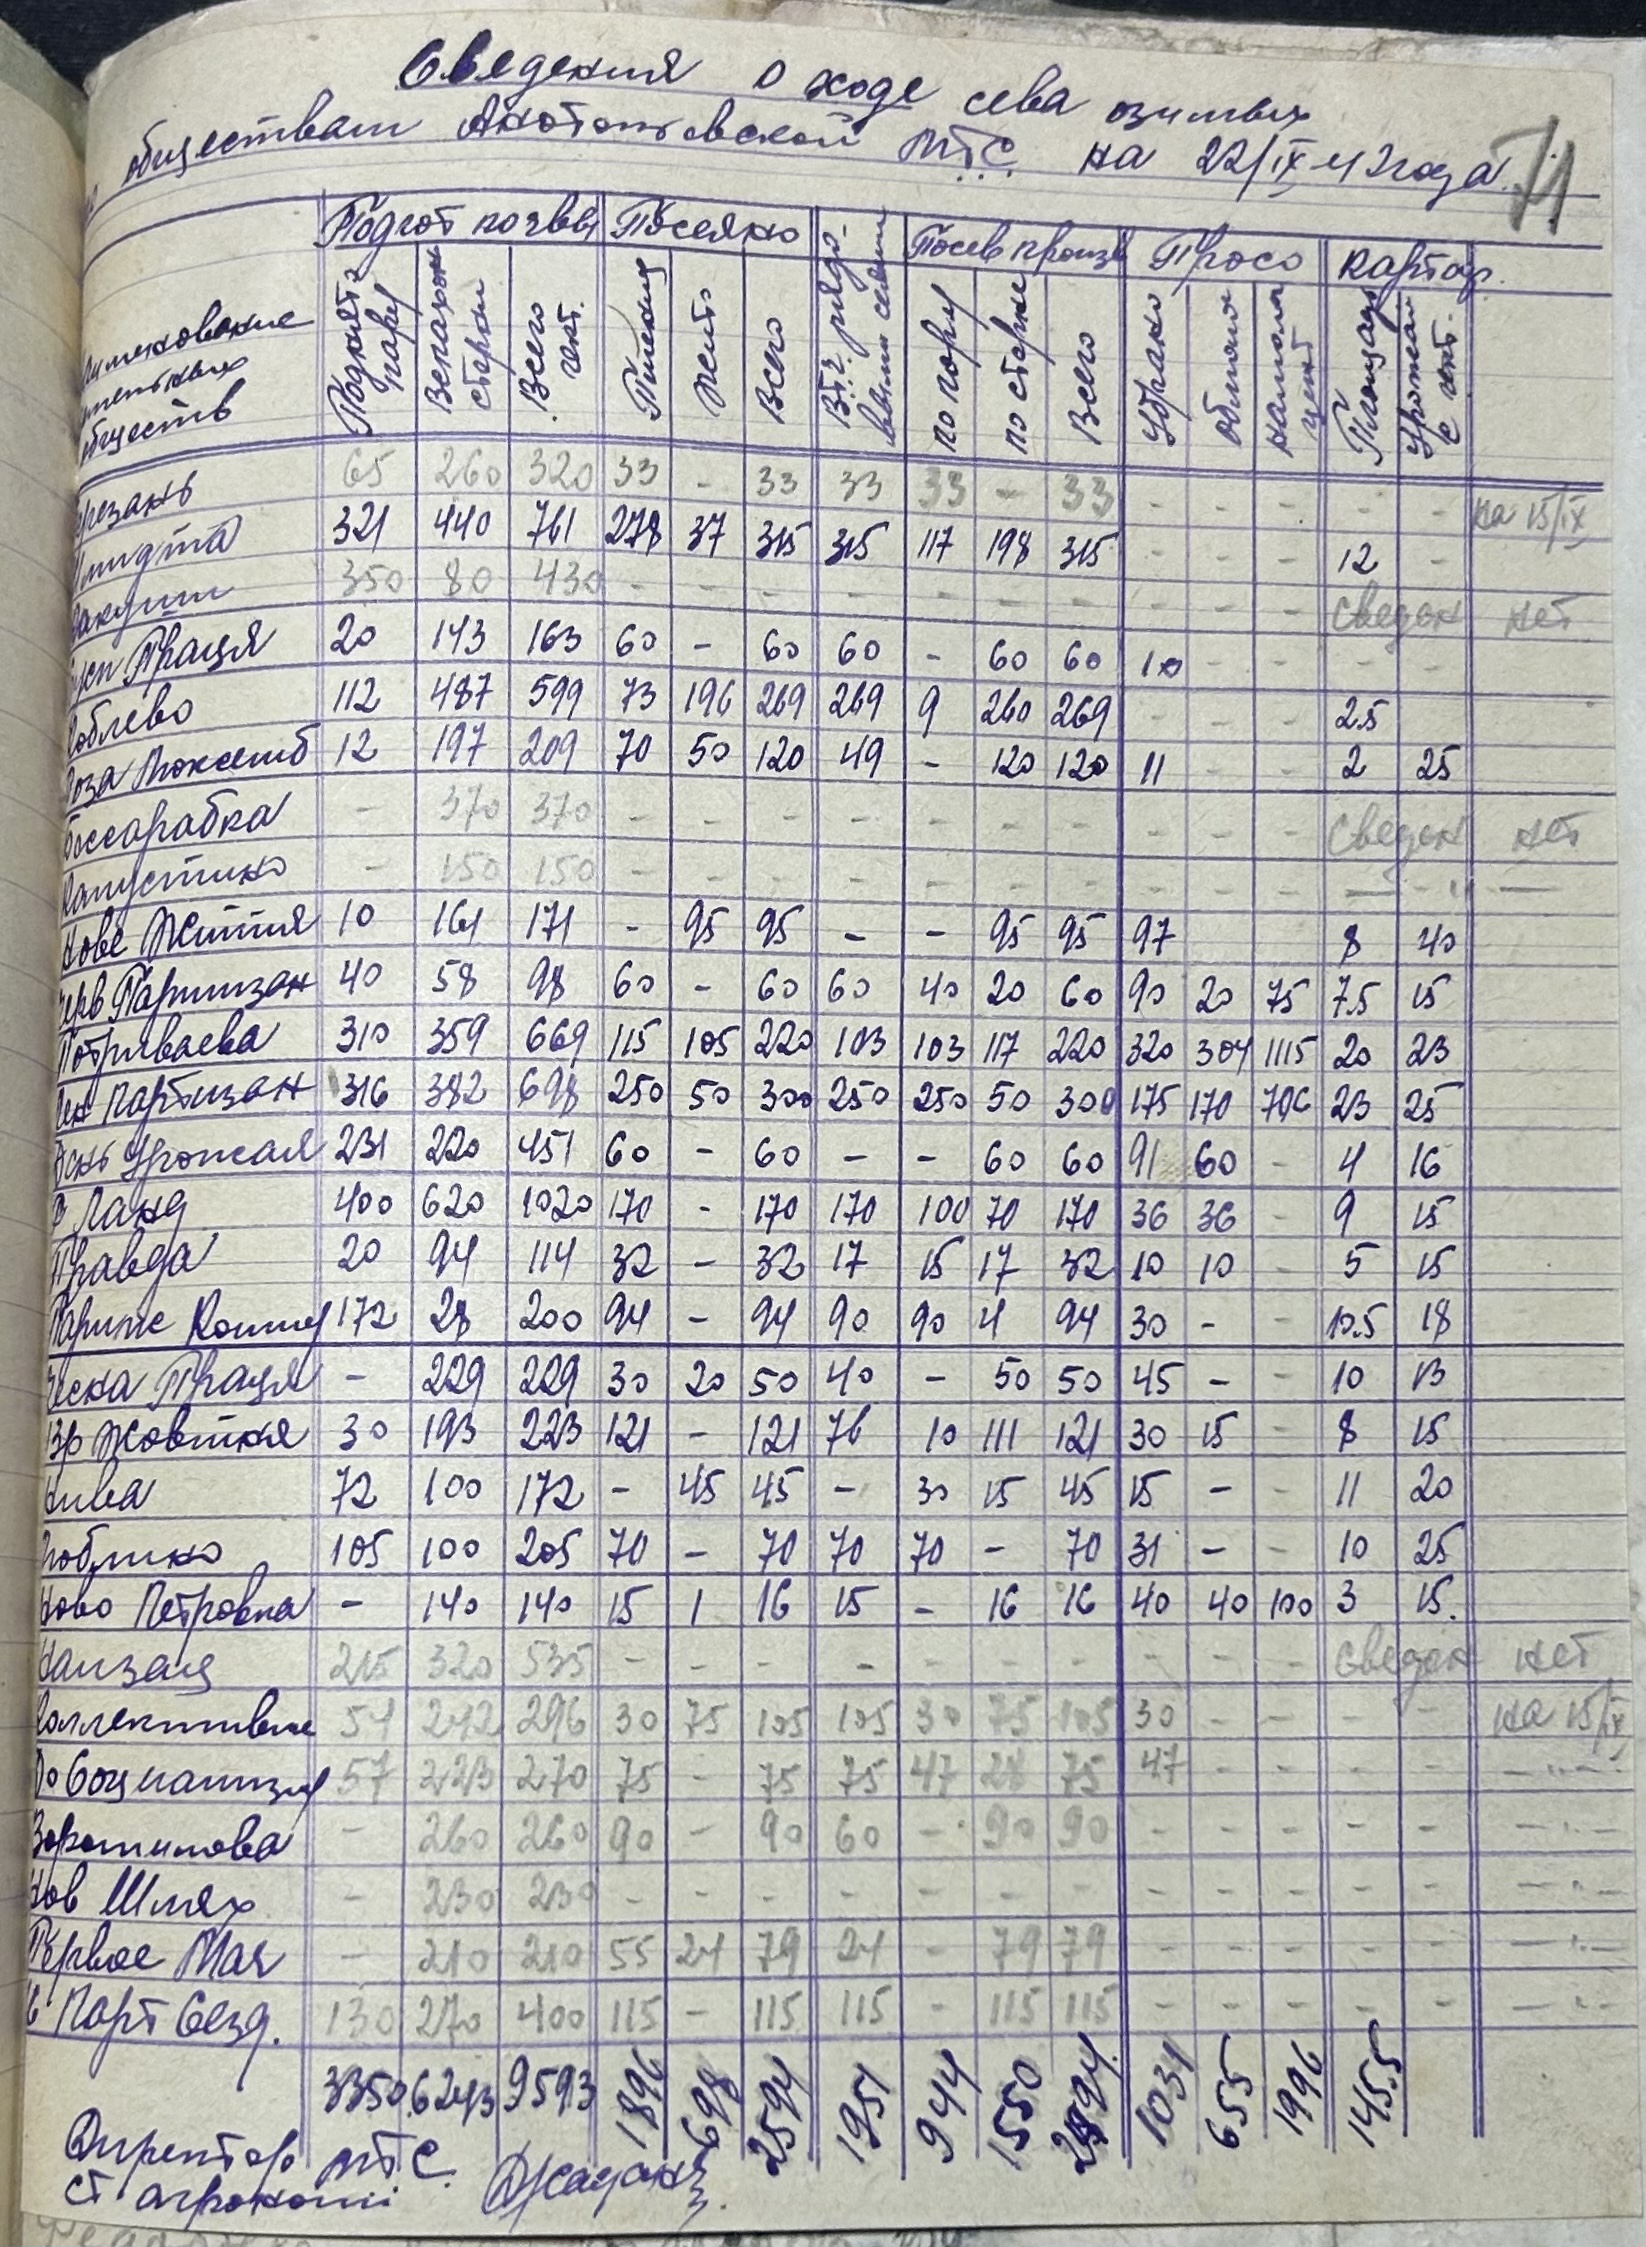 Сведения о ходе сева озимых
обществам Анатольевской МТС на 22/IX 42 года.
11
Подгот почвы | Посеяно | Вт.ч. рядо-выми сеялк | Посев произв | Просо | картоф.
Поднят паров | Вспахан стерни | Всего гект. | Пшениц | Жито | Всего | по пару | по стерне | Всего | Убрано | Обмолоч | намолоч цент | Площадь | Урожай с гект.
именование
обществ
ерезань 65 260 320 33 - 33 33 33 - 33 - - - - - на 15/IX
Шмидта 321 440 761 278 37 315 315 117 198 315 - - - 12 -
350 80 430 - - - - - - - - - - сведен нет
Праця 20 143 163 60 - 60 60 - 60 60 10 - - - -
Коблево 112 487 599 73 196 269 269 9 260 269 - - - 2.5
Роза Люксемб 12 197 209 70 50 120 49 - 120 120 11 - - 2 25
Бессарабка - 370 370 - - - - - - - - - - сведен нет
Капустино - 150 150 - - - - - - - - - - — " —
Нове Життя 10 161 171 - 95 95 - - 95 95 97 8 40
Черв Партизан 40 58 98 60 - 60 60 40 20 60 90 20 75 7.5 15
Потриваева 310 359 669 115 105 220 103 103 117 220 320 304 1115 20 23
Партизан 316 382 698 250 50 300 250 250 50 300 175 170 706 23 25
День Урожая 231 220 451 60 - 60 - - 60 60 91 60 - 4 16
Ланд 400 620 1020 170 - 170 170 100 70 170 36 36 - 9 15
Правда 20 94 114 32 - 32 17 15 17 32 10 10 - 5 15
Париж Комму 172 28 200 94 - 94 90 90 4 94 30 - - 10.5 18
Праця - 229 229 30 20 50 40 - 50 50 45 - - 10 13
Жовтня 30 193 223 121 - 121 76 10 111 121 30 15 - 8 15
Нива 72 100 172 - 45 45 - 30 15 45 15 - - 11 20
105 100 205 70 - 70 70 70 - 70 31 - - 10 25
Ново Петровка - 140 140 15 1 16 15 - 16 16 40 40 100 3 15.
215 320 535 - - - - - - - - - - сведен нет
Коллективне 54 242 296 30 75 105 105 30 75 105 30 - - - - на 15/IX
До Социализм 57 223 270 75 - 75 75 47 28 75 47 - - - - — " —
Ворошилова - 260 260 90 - 90 60 - 90 90 - - - - - — " —
Нов Шлях - 230 230 - - - - - - - - - - - - — " —
Первое Мая - 210 210 55 24 79 24 - 79 79 - - - - - — " —
Парт Сезд. 130 270 400 115 - 115 115 - 115 115 - - - - - — " —
3350 6243 9593 1896 698 2594 1951 944 1550 2594 1031 655 1996 145.5
Директор МТС
ст агроном